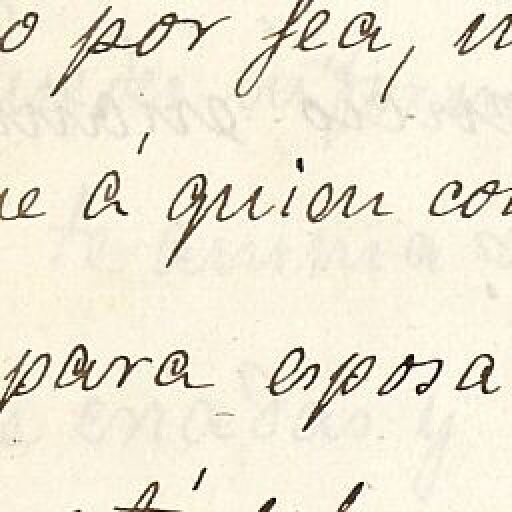 o por fea,
á quien
para esposa